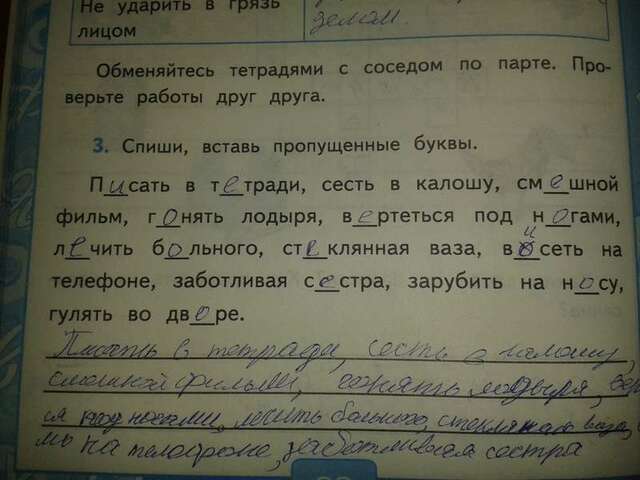 Не ударить в грязь
лицом
делом.
Обменяйтесь тетрадями с соседом по парте. Про-
верьте работы друг друга.
3. Спиши, вставь пропущенные буквы.
Писать в тетради, сесть в калошу, смешной
фильм, гонять лодыря, вертеться под ногами,
лечить больного, стеклянная ваза, висеть на
телефоне, заботливая сестра, зарубить на носу,
гулять во дворе.
Писать в тетради, сесть в калошу,
смешной фильм, гонять лодыря, вер
ся под ногами, лечить больного, стеклянная ваза,
на телефоне, заботливая сестра